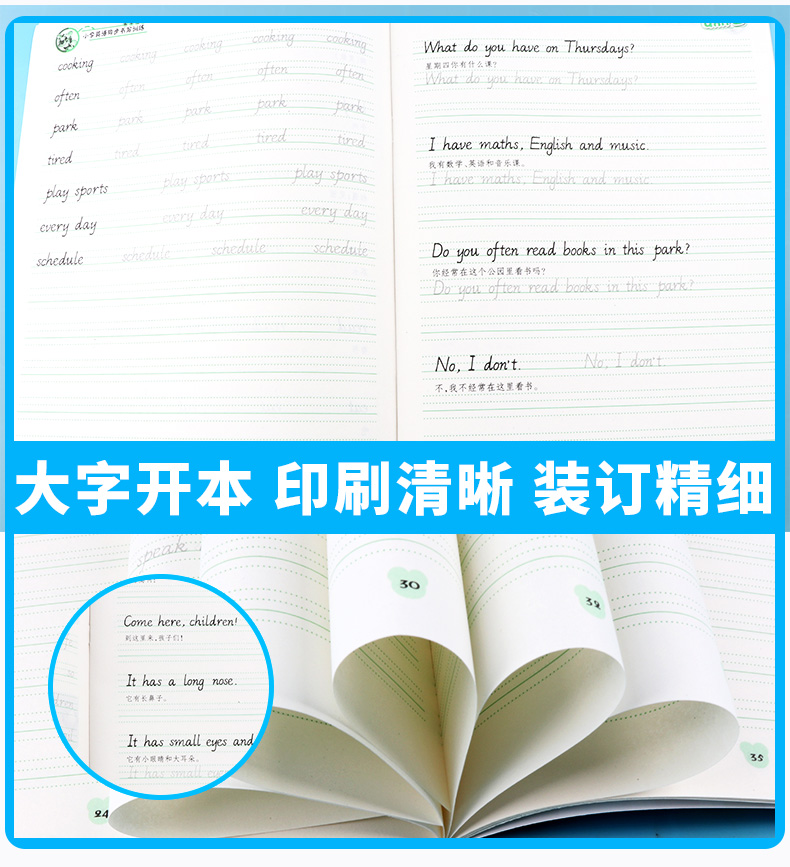 小学英语同步书写训练
cooking cooking cooking cooking cooking
often often often often often
park park park park park
tired tired tired tired tired
play sports play sports play sports
every day every day every day
schedule schedule schedule schedule
What do you have on Thursdays?
星期四你有什么课?
What do you have on Thursdays?
I have maths, English and music.
我有数学、英语和音乐课。
I have maths, English and music.
Do you often read books in this park?
你经常在这个公园里看书吗?
Do you often read books in this park?
No, I don't. No, I don't.
不,我不经常在这里看书。
大字开本 印刷清晰 装订精细
speak
30
32
Come here, children!
到这里来,孩子们!
It has a long nose.
它有长鼻子。
It has small eyes and
它有小眼睛和大耳朵。
It has small eye
24
35